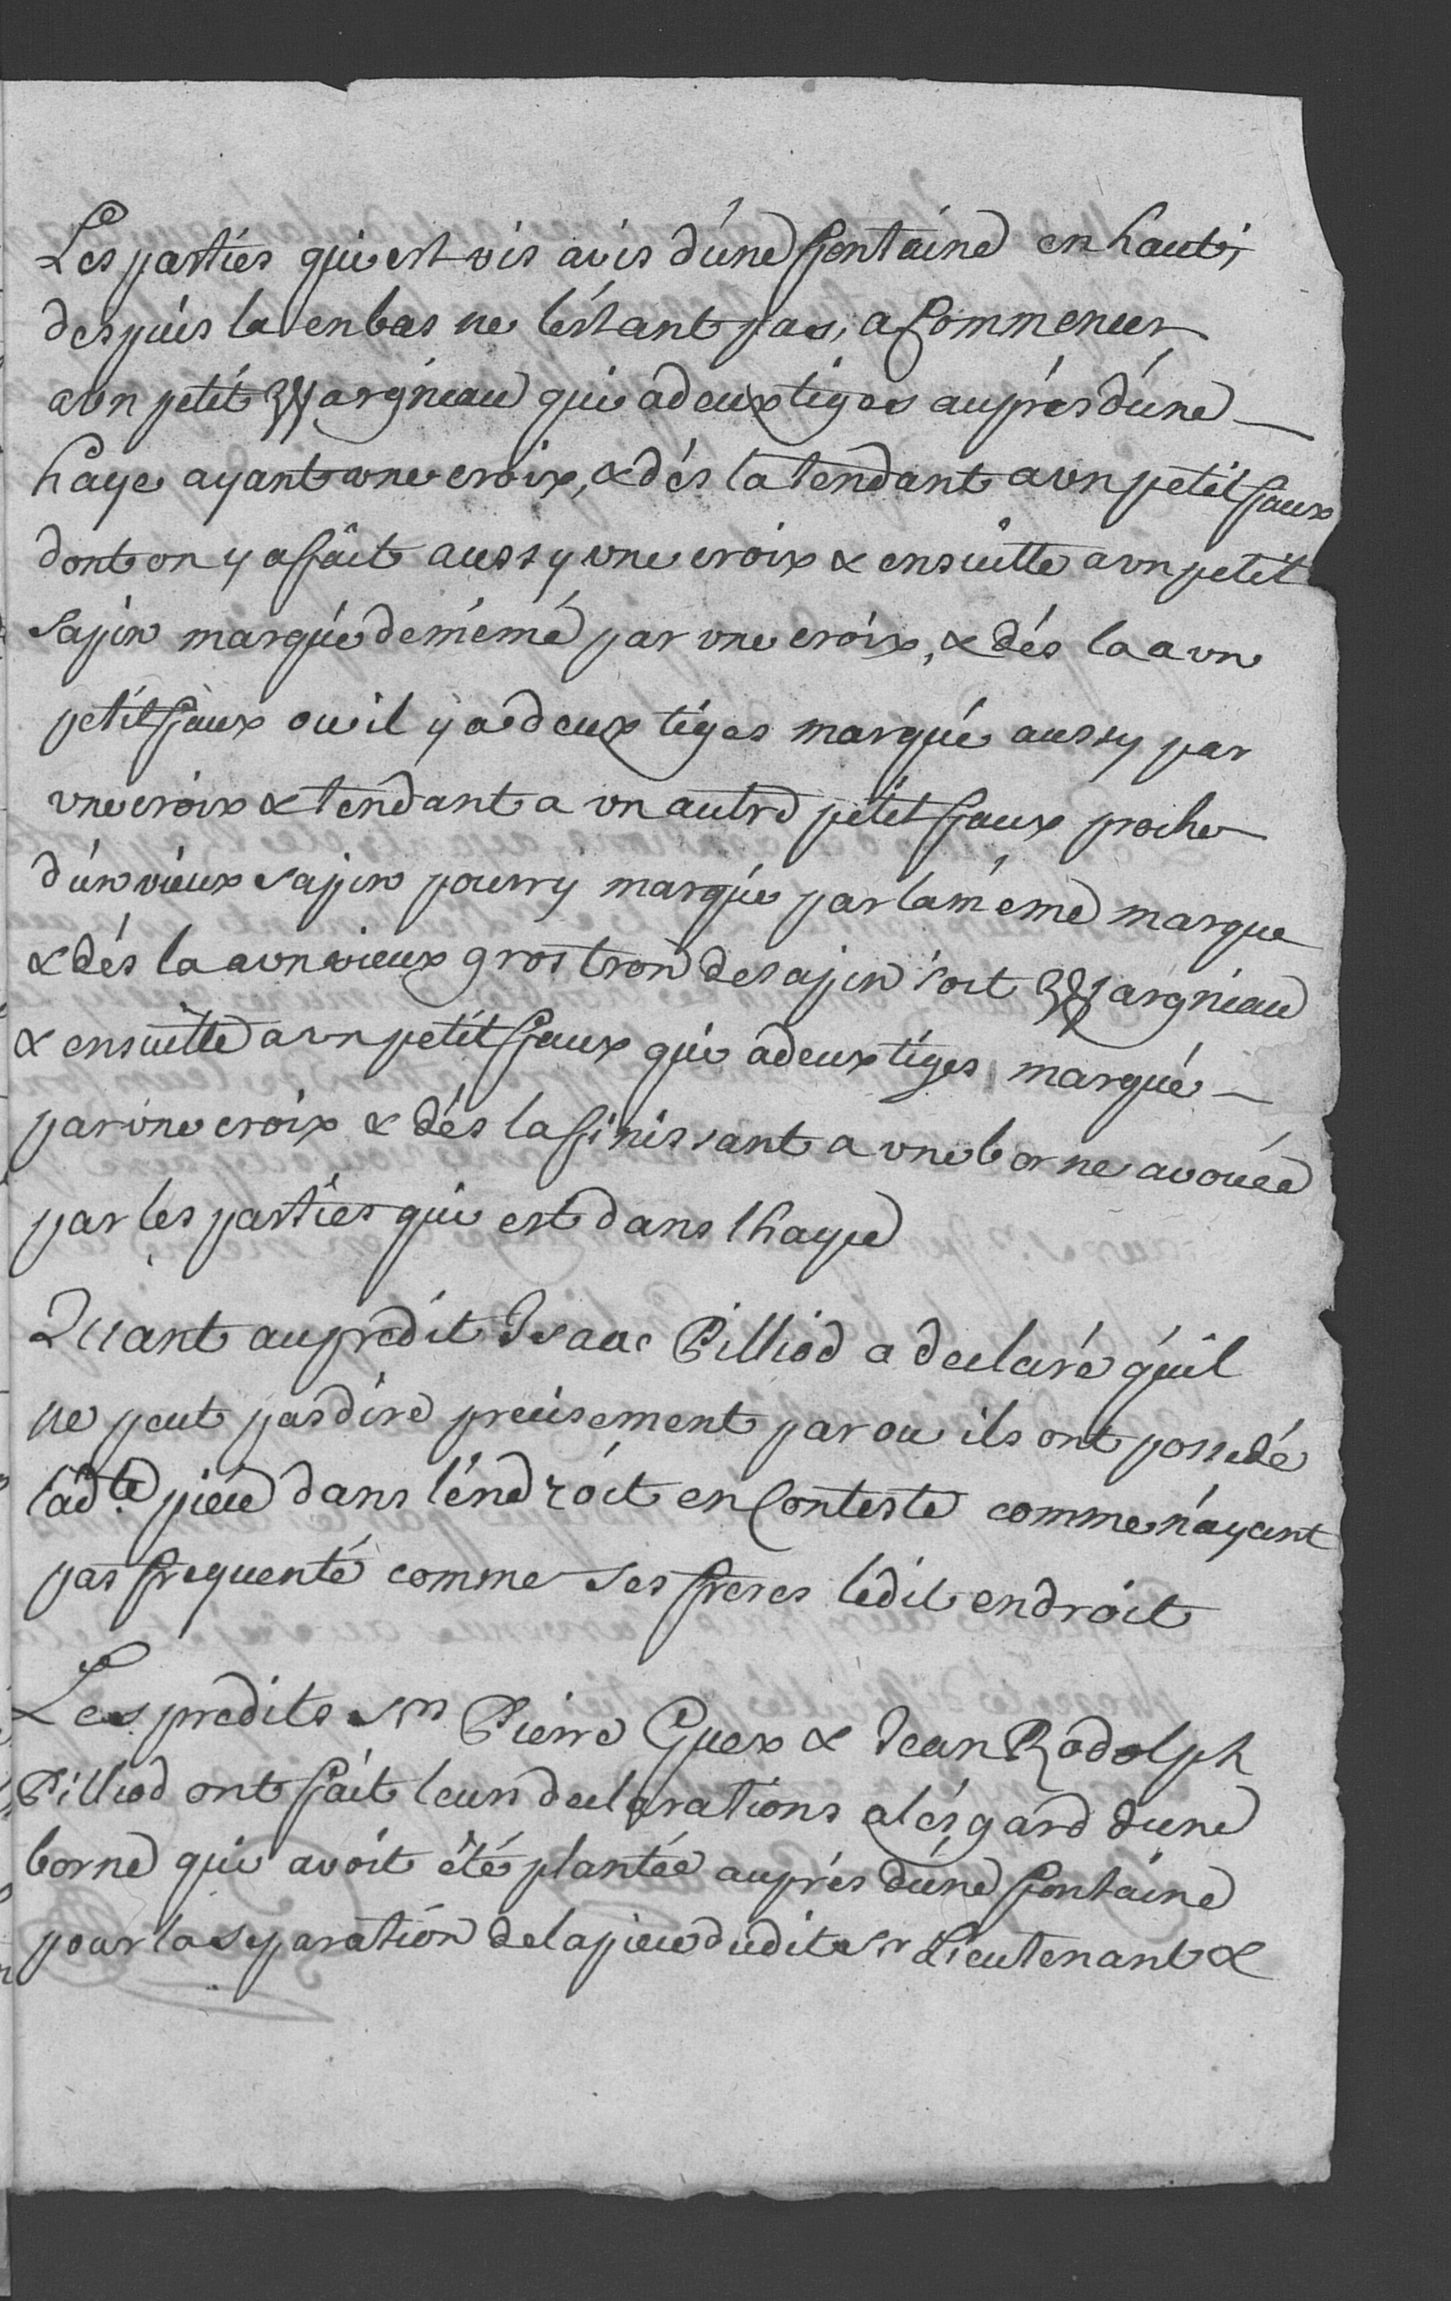 Les parties qui est vis avis d'une fontaine en haut;
despuis la en bas ne l'estant pas, a Commencer
a un petit Wargneau qui a deux tiges aupres d'une
haye ayant une croix, & dés la tendant a un petit faux
dont on y a fait aussy une croix & ensuitte a un petit
sapin marqué de méme par une croix, & dés la a un
petit faux ou il y a deux tiges marqué aussy par
une croix & tendant a un autre petit faux proche
d'un vieux sapin pourry marqué par la méme marque
& dés la a un vieux gros tron de sapin soit Wargneau
& ensuitte a un petit faux qui a deux tiges marqué
par une croix & dés la finissant a une borne avouée
par les parties qui est dans l haye
Quant au predit Isaac Pilliod a declaré qu'il
ne peut pas dire precisement par ou ils ont possedé
ladte. piece dans l'endroit en Conteste comme n'ayant
pas frequenté comme ses freres ledit endroit
Les predits Srs Pierre Guex & Jean Rodolph
Pilliod ont fait leurs declarations a l'esgard d'une
borne qui avoit été plantée auprés d'une fontaine
pour la separation de la piece dudit Sr Lieutenant &